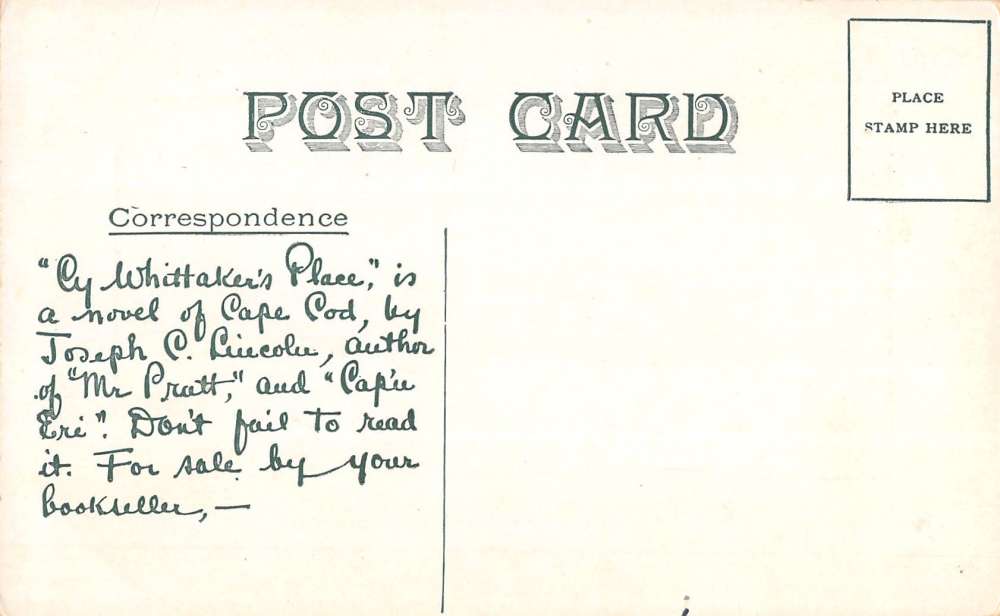 POST CARD
PLACE
STAMP HERE
Correspondence
"Cy Whittaker's Place," is
a novel of Cape Cod, by
Joseph C. Lincoln, author
of "Mr Pratt," and "Cap'n
Eri". Don't fail to read
it. For sale by your
bookseller,—